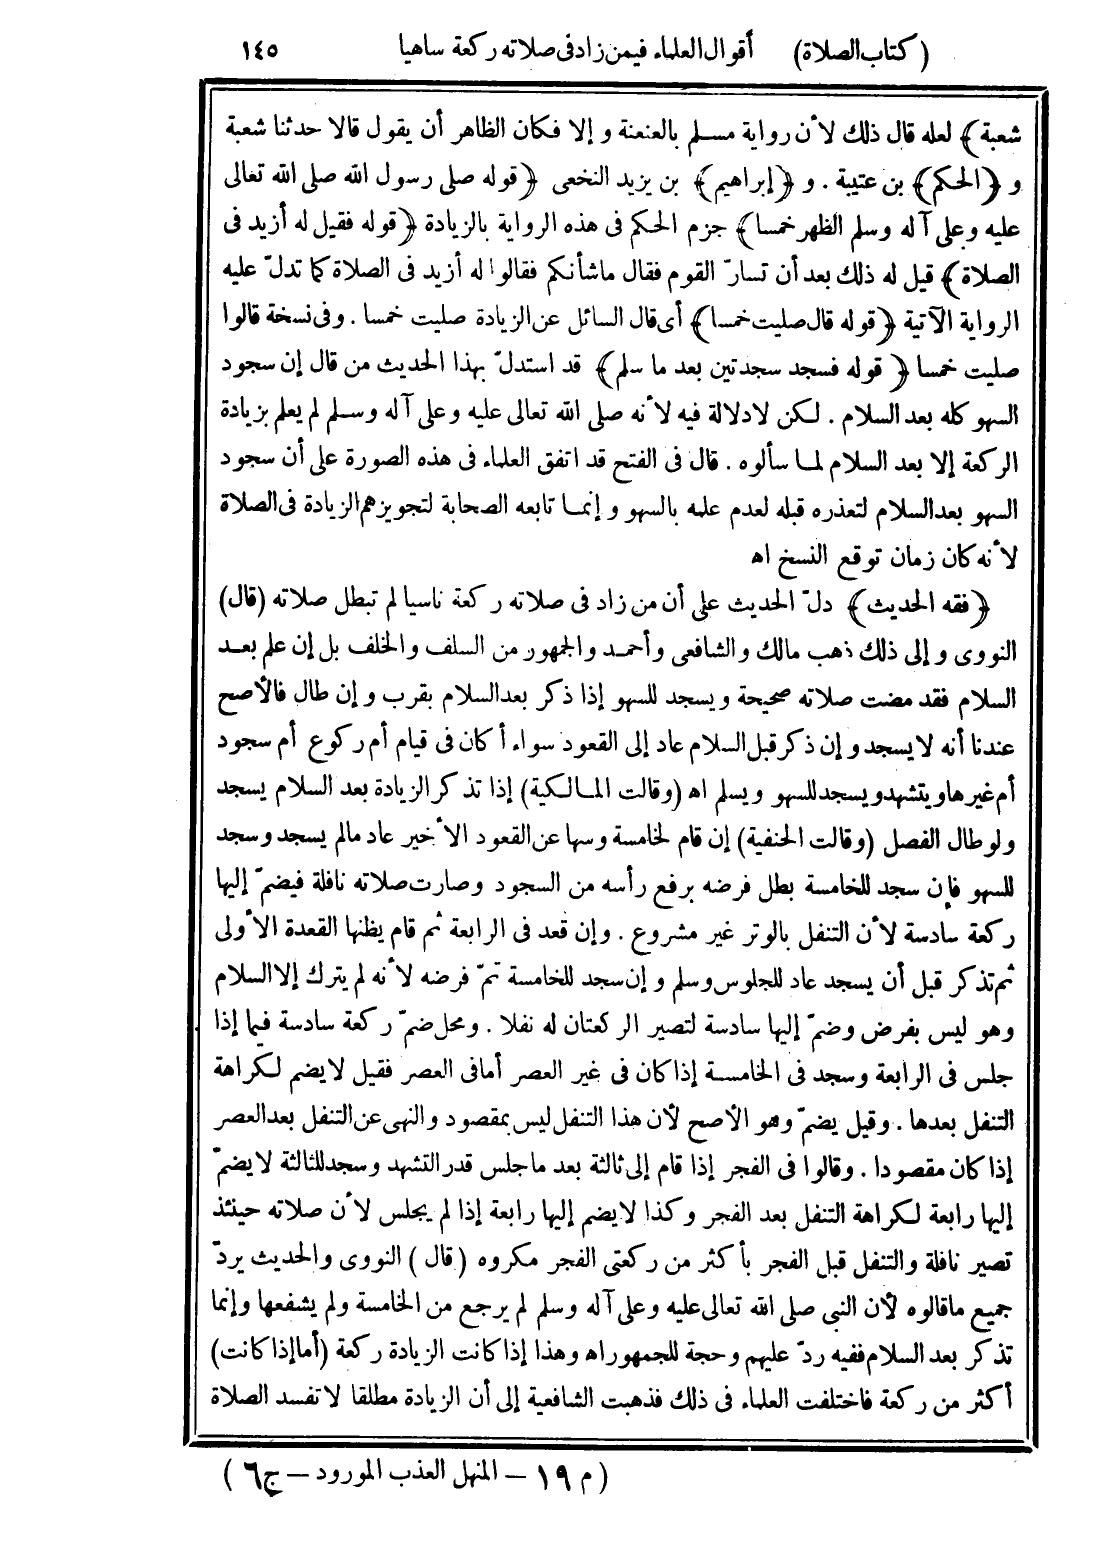 (كتاب الصلاة) أقوال العلماء فيمن زاد فى صلاته ركعة ساهيا ١٤٥
شعبة﴾ لعله قال ذلك لأن رواية مسلم بالعنعنة وإلا فكان الظاهر أن يقول قالا حدثنا شعبة
و ﴿الحكم﴾ بن عتيبة . و ﴿إبراهيم﴾ بن يزيد النخعى ﴿قوله صلى رسول الله صلى الله تعالى
عليه وعلى آله وسلم الظهر خمسا﴾ جزم الحكم فى هذه الرواية بالزيادة ﴿قوله فقيل له أزيد فى
الصلاة﴾ قيل له ذلك بعد أن تسارّ القوم فقال ماشأنكم فقالوا له أزيد فى الصلاة كما تدلّ عليه
الرواية الآتية ﴿قوله قال صليت خمسا﴾ أى قال السائل عن الزيادة صليت خمسا . وفى نسخة قالوا
صليت خمسا ﴿قوله فسجد سجدتين بعد ما سلم﴾ قد استدلّ بهذا الحديث من قال إن سجود
السهو كله بعد السلام . لكن لادلالة فيه لأنه صلى الله تعالى عليه وعلى آله وسلم لم يعلم بزيادة
الركعة إلا بعد السلام لما سألوه . قال فى الفتح قد اتفق العلماء فى هذه الصورة على أن سجود
السهو بعد السلام لتعذره قبله لعدم علمه بالسهو وإنما تابعه الصحابة لتجويزهم الزيادة فى الصلاة
لأنه كان زمان توقع النسخ اه
﴿فقه الحديث﴾ دلّ الحديث على أن من زاد فى صلاته ركعة ناسيا لم تبطل صلاته (قال)
النووى وإلى ذلك ذهب مالك والشافعى وأحمد والجمهور من السلف والخلف بل إن علم بعد
السلام فقد مضت صلاته صحيحة ويسجد للسهو إذا ذكر بعد السلام بقرب وإن طال فالأصح
عندنا أنه لايسجد وإن ذكر قبل السلام عاد إلى القعود سواء أكان فى قيام أم ركوع أم سجود
أم غيرها ويتشهد ويسجد للسهو ويسلم اه (وقالت المالكية) إذا تذكر الزيادة بعد السلام يسجد
ولو طال الفصل (وقالت الحنفية) إن قام لخامسة وسها عن القعود الأخير عاد مالم يسجد وسجد
للسهو فإن سجد للخامسة بطل فرضه برفع رأسه من السجود وصارت صلاته نافلة فيضمّ إليها
ركعة سادسة لأن التنفل بالوتر غير مشروع . وإن قعد فى الرابعة ثم قام يظنها القعدة الأولى
ثم تذكر قبل أن يسجد عاد للجلوس وسلم وإن سجد للخامسة تمّ فرضه لأنه لم يترك إلا السلام
وهو ليس بفرض وضمّ إليها سادسة لتصير الركعتان له نفلا . ومحل ضمّ ركعة سادسة فيما إذا
جلس فى الرابعة وسجد فى الخامسة إذا كان فى غير العصر أما فى العصر فقيل لايضم لكراهة
التنفل بعدها . وقيل يضمّ وهو الأصح لأن هذا التنفل ليس بمقصود والنهى عن التنفل بعد العصر
إذا كان مقصودا . وقالوا فى الفجر إذا قام إلى ثالثة بعد ما جلس قدر التشهد وسجد للثالثة لايضمّ
إليها رابعة لكراهة التنفل بعد الفجر وكذا لايضم إليها رابعة إذا لم يجلس لأن صلاته حينئذ
تصير نافلة والتنفل قبل الفجر بأكثر من ركعتى الفجر مكروه (قال) النووى والحديث يردّ
جميع ماقالوه لأن النبى صلى الله تعالى عليه وعلى آله وسلم لم يرجع من الخامسة ولم يشفعها وإنما
تذكر بعد السلام ففيه ردّ عليهم وحجة للجمهور اه وهذا إذا كانت الزيادة ركعة (أما إذا كانت)
أكثر من ركعة فاختلفت العلماء فى ذلك فذهبت الشافعية إلى أن الزيادة مطلقا لاتفسد الصلاة
(م ١٩ – المنهل العذب المورود – ج ٦)